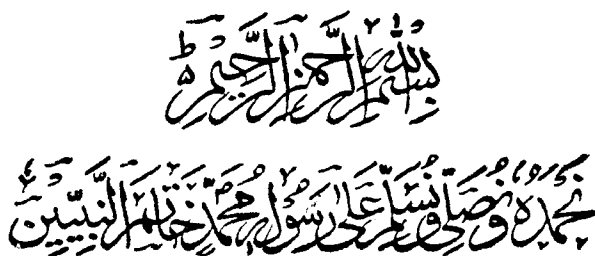 بِسْمِ اللّٰهِ الرَّحْمٰنِ الرَّحِيْمِ ۵ ط
نَحْمَدُهٗ وَنُصَلِّیْ وَنُسَلِّمُ عَلٰی رَسُوْلِهٖ مُحَمَّدٍ خَاتَمِ النَّبِيِّيْنَ